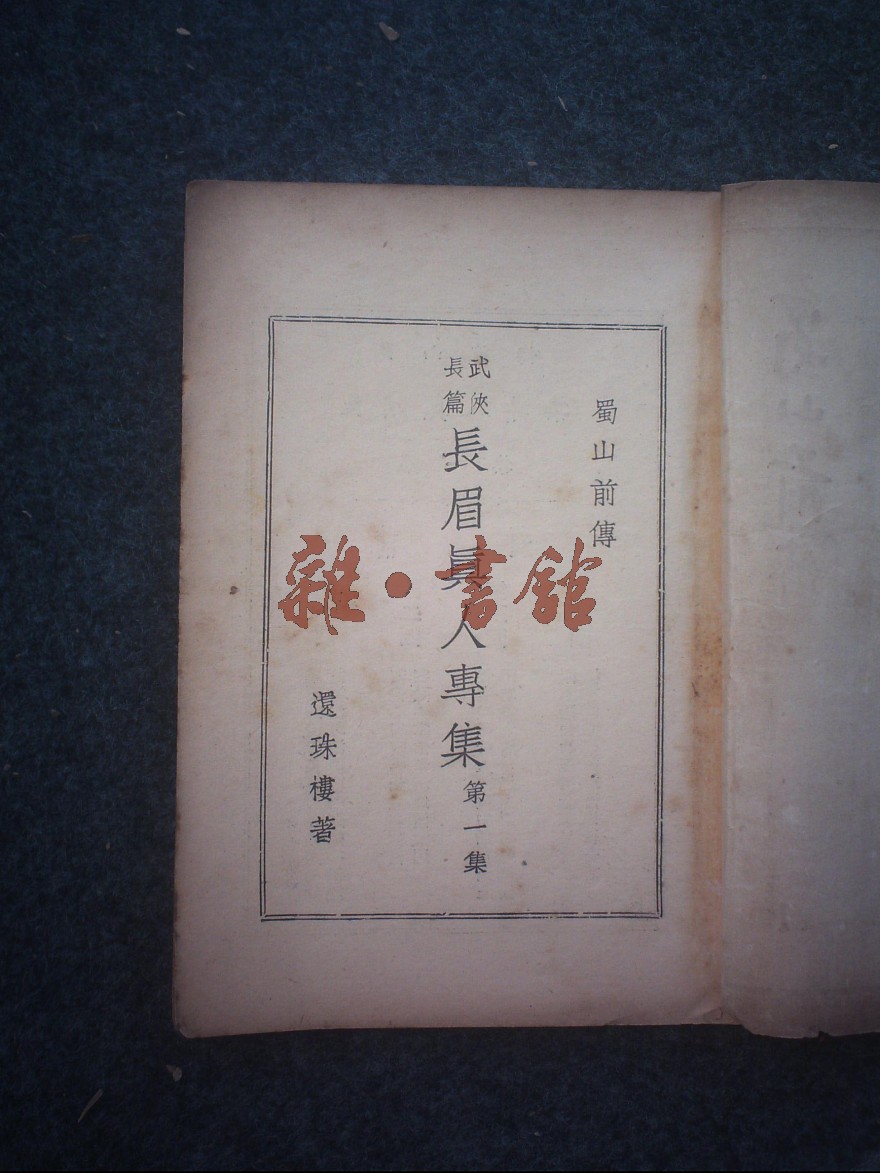 蜀山前傳
武俠
長篇
長眉眞人專集
第一集
還珠樓著
雜·書館